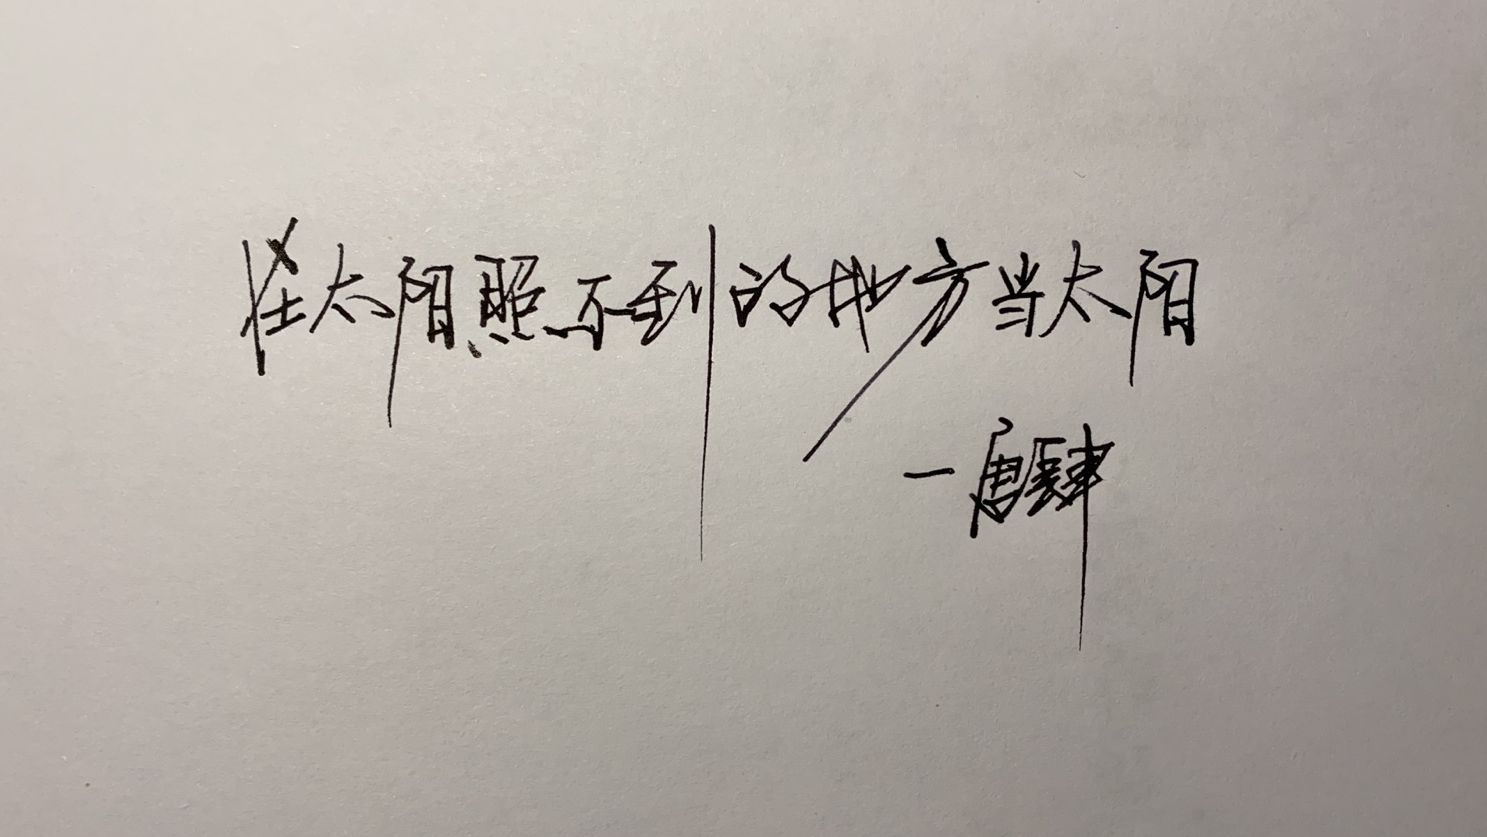 在太阳照不到的地方当太阳
一唐肆